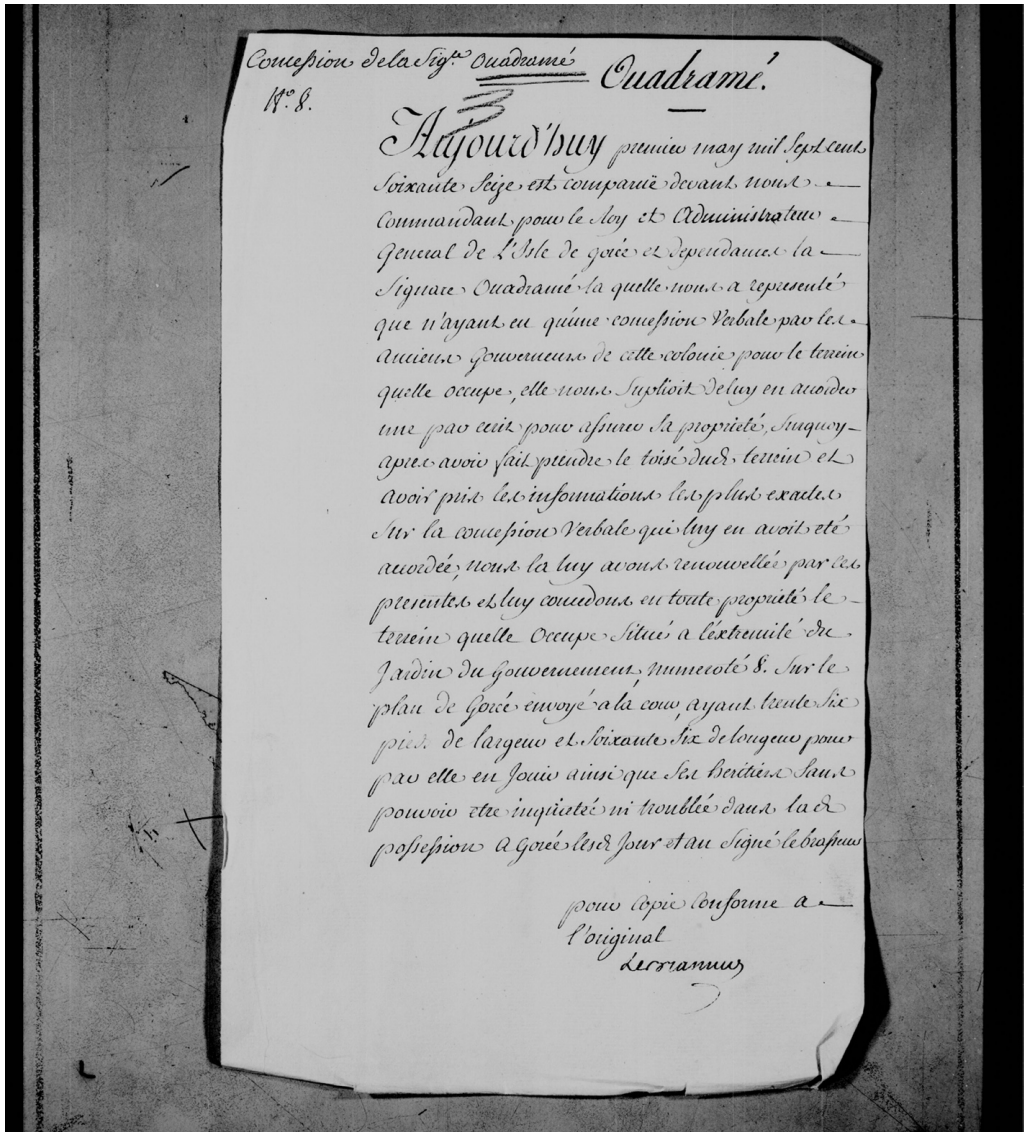 Concession de la Sig.re Ouadramé
Ouadramé.
N.o 8.
Aujourd'huy premier may mil Sept cent
Soixante Seize est comparüe devant nous
Commandant pour le Roy et Administrateur
General de L'Isle de gorée et dependances la
Signare Ouadramé la quelle nous a representé
que n'ayant eu qu'une concession Verbale par les
anciens Gouverneurs de cette colonie pour le terrein
quelle occupe, elle nous Suplioit de luy en accorder
une par ecrit pour assurer Sa propriété, Surquoy
apres avoir fait prendre le toisé dud. terrein et
avoir pris les informations les plus exactes
Sur la concession Verbale qui luy en avoit eté
accordée, nous la luy avons renouvellée par ces
presentes et luy concedons en toute propriété le
terrein quelle Occupe Situé a l'éxtremité du
Jardin du Gouvernement, numeroté 8. Sur le
plan de Gorée envoyé a la cour, ayant trente Six
pieds de largeur et Soixante Six de longeur pour
par elle en Jouir ainsi que Ses heritiers Sans
pouvoir etre inquieteé ni troublée dans lad.
possession A Gorée lesd. Jour et an Signé le brasseur
pour Copie Conforme a
l'original